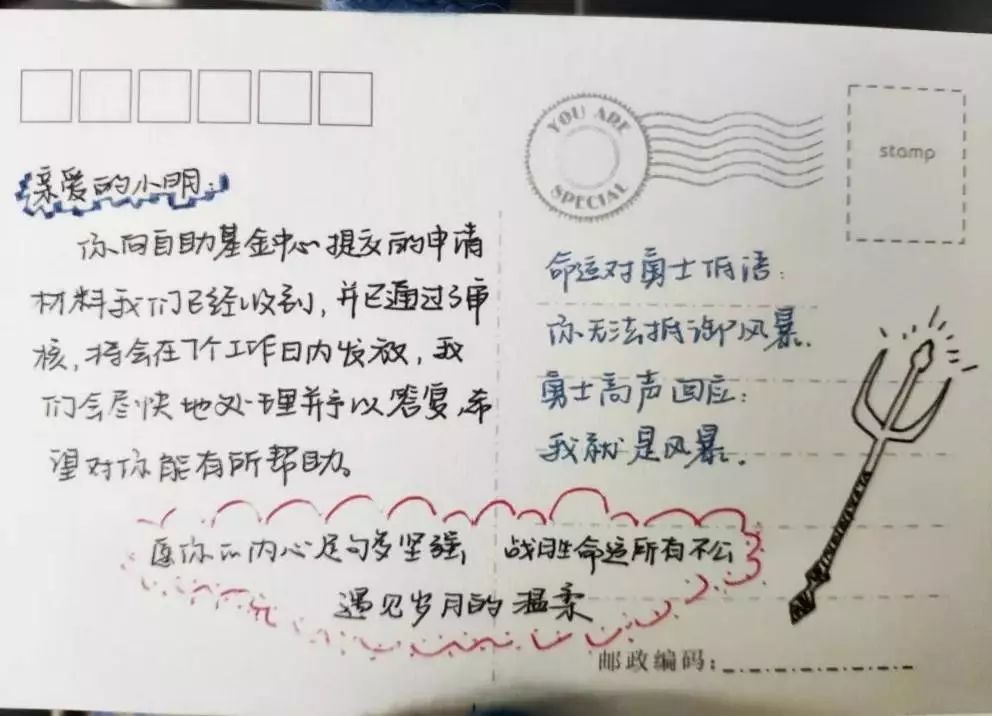 亲爱的小明:
你向自助基金中心提交的申请
材料我们已经收到,并已通过了审
核,将会在7个工作日内发放,我
们会尽快地处理并予以答复,希
望对你能有所帮助。
YOU ARE
SPECIAL
stamp
命运对勇士低语:
你无法抵御风暴.
勇士高声回应:
我就是风暴.
愿你的内心足够多坚强, 战胜命运所有不公
遇见岁月的温柔
邮政编码: